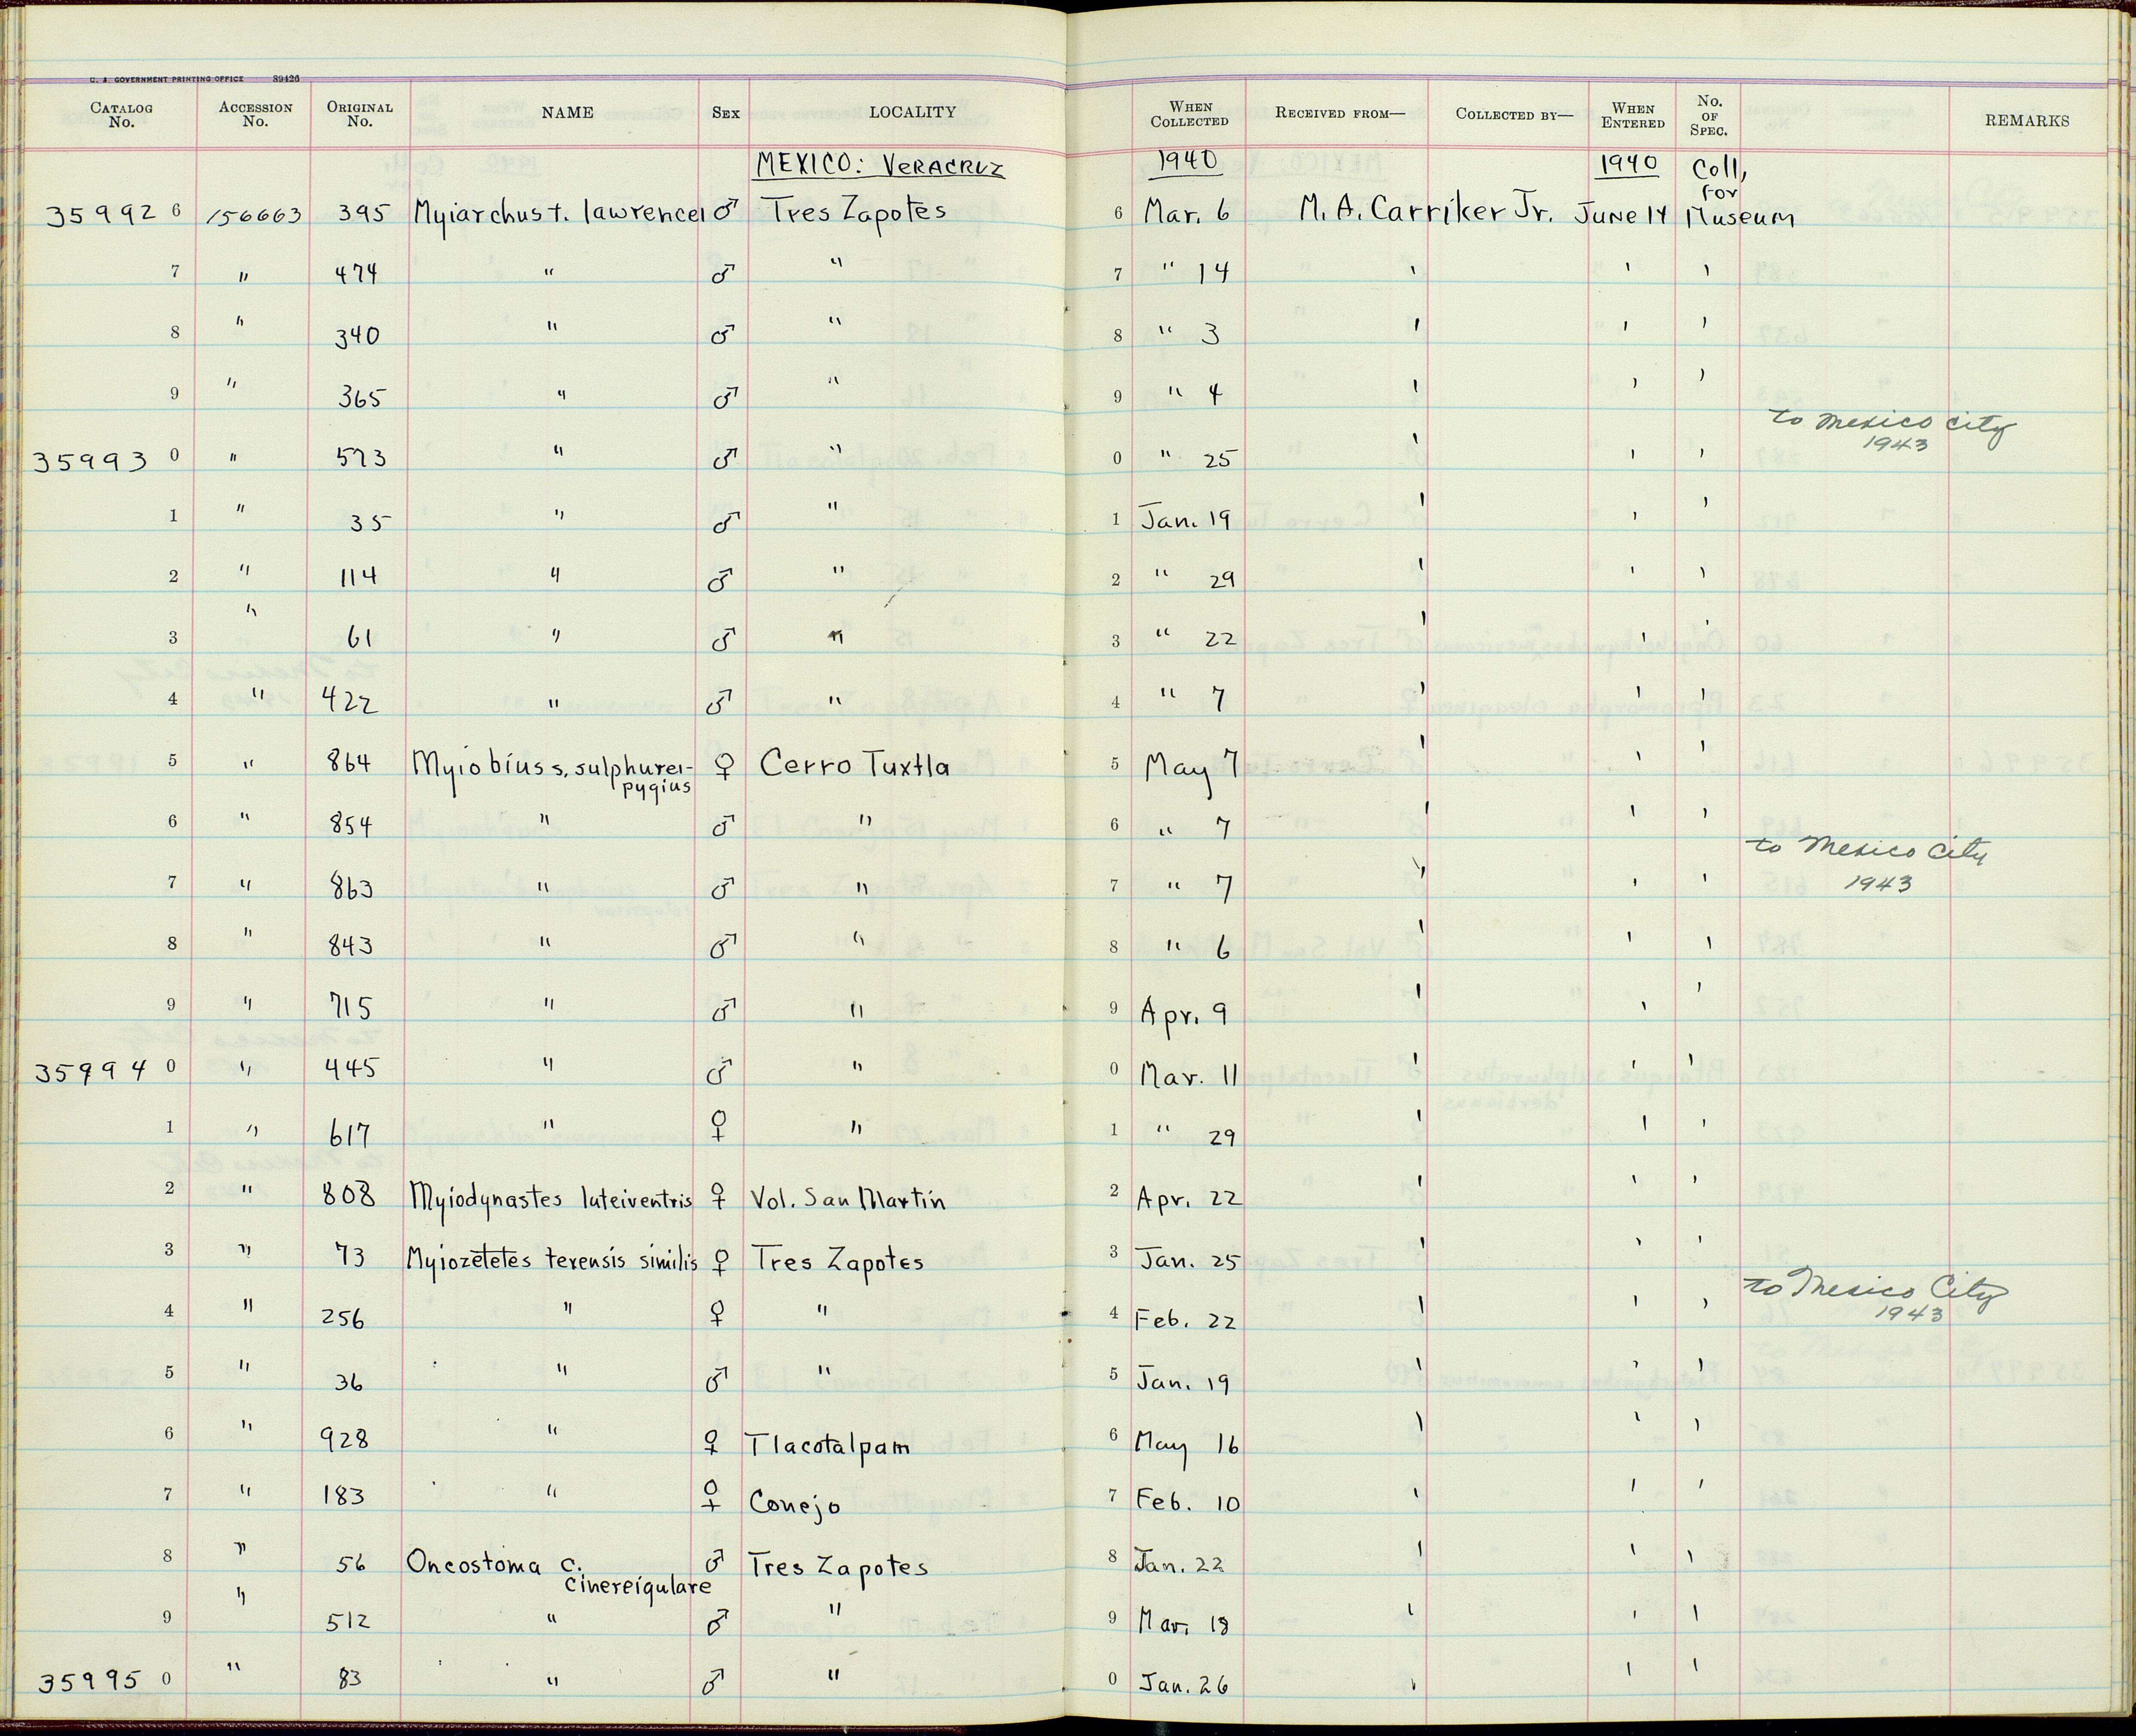 U. S. GOVERNMENT PRINTING OFFICE 89426
CATALOG No. ACCESSION No. ORIGINAL No. NAME SEX LOCALITY WHEN COLLECTED RECEIVED FROM— COLLECTED BY— WHEN ENTERED No. OF SPEC. REMARKS
MEXICO: VERACRUZ 1940 1940 Coll, for
35992 6 156663 395 Myiarchus t. lawrencei ♂ Tres Zapotes 6 Mar. 6 M. A. Carriker Jr. June 14 Museum
7 " 474 " ♂ " 7 " 14 ' ' '
8 " 340 " ♂ " 8 " 3 ' ' '
9 " 365 " ♂ " 9 " 4 ' ' '
35993 0 " 573 " ♂ " 0 " 25 ' ' ' to Mexico City 1943
1 " 35 " ♂ " 1 Jan. 19 ' ' '
2 " 114 " ♂ " 2 " 29 ' ' '
3 " 61 " ♂ " 3 " 22 ' ' '
4 " 422 " ♂ " 4 " 7 ' ' '
5 " 864 Myiobius s. sulphurei-pygius ♀ Cerro Tuxtla 5 May 7 ' ' '
6 " 854 " ♂ " 6 " 7 ' ' '
7 " 863 " ♂ " 7 " 7 ' ' ' to Mexico City 1943
8 " 843 " ♂ " 8 " 6 ' ' '
9 " 715 " ♂ " 9 Apr. 9 ' ' '
35994 0 " 445 " ♂ " 0 Mar. 11 ' ' '
1 " 617 " ♀ " 1 " 29 ' ' '
2 " 808 Myiodynastes luteiventris ♀ Vol. San Martin 2 Apr. 22 ' ' '
3 " 73 Myiozetetes texensis similis ♀ Tres Zapotes 3 Jan. 25 ' ' '
4 " 256 " ♀ " 4 Feb. 22 ' ' ' to Mexico City 1943
5 " 36 " ♂ " 5 Jan. 19 ' ' '
6 " 928 " ♀ Tlacotalpam 6 May 16 ' ' '
7 " 183 " ♀ Conejo 7 Feb. 10 ' ' '
8 " 56 Oncostoma c. cinereigulare ♂ Tres Zapotes 8 Jan. 22 ' ' '
9 " 512 " ♂ " 9 Mar. 18 ' ' '
35995 0 " 83 " ♂ " 0 Jan. 26 ' ' '